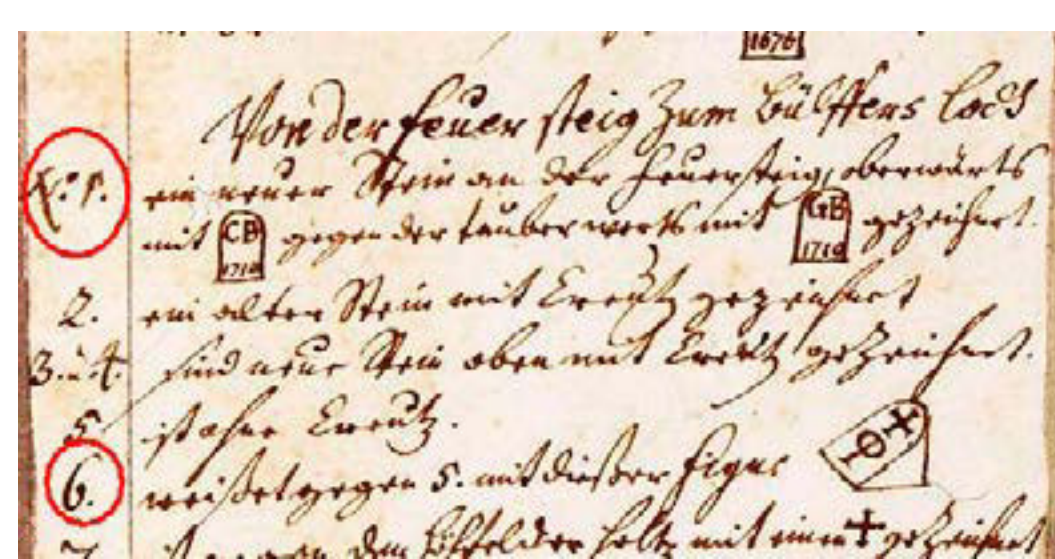 1676
Von der feuer steig zum Bülffers loch
N: 1. ein neuer Stein an der feuersteig, oberwärts
mit CB 1710 gegen der tauber werts mit GB 1710 gezeichnet.
2. ein alter Stein mit Creutz gezeichnet
3. u. 4. sind neue Stein oben mit Creutz gezeichnet.
5 ist ohne Creutz.
6. weißet gegen 5. mit dießer figur
7. ist gegen den holtz mit einem + gezeichnet